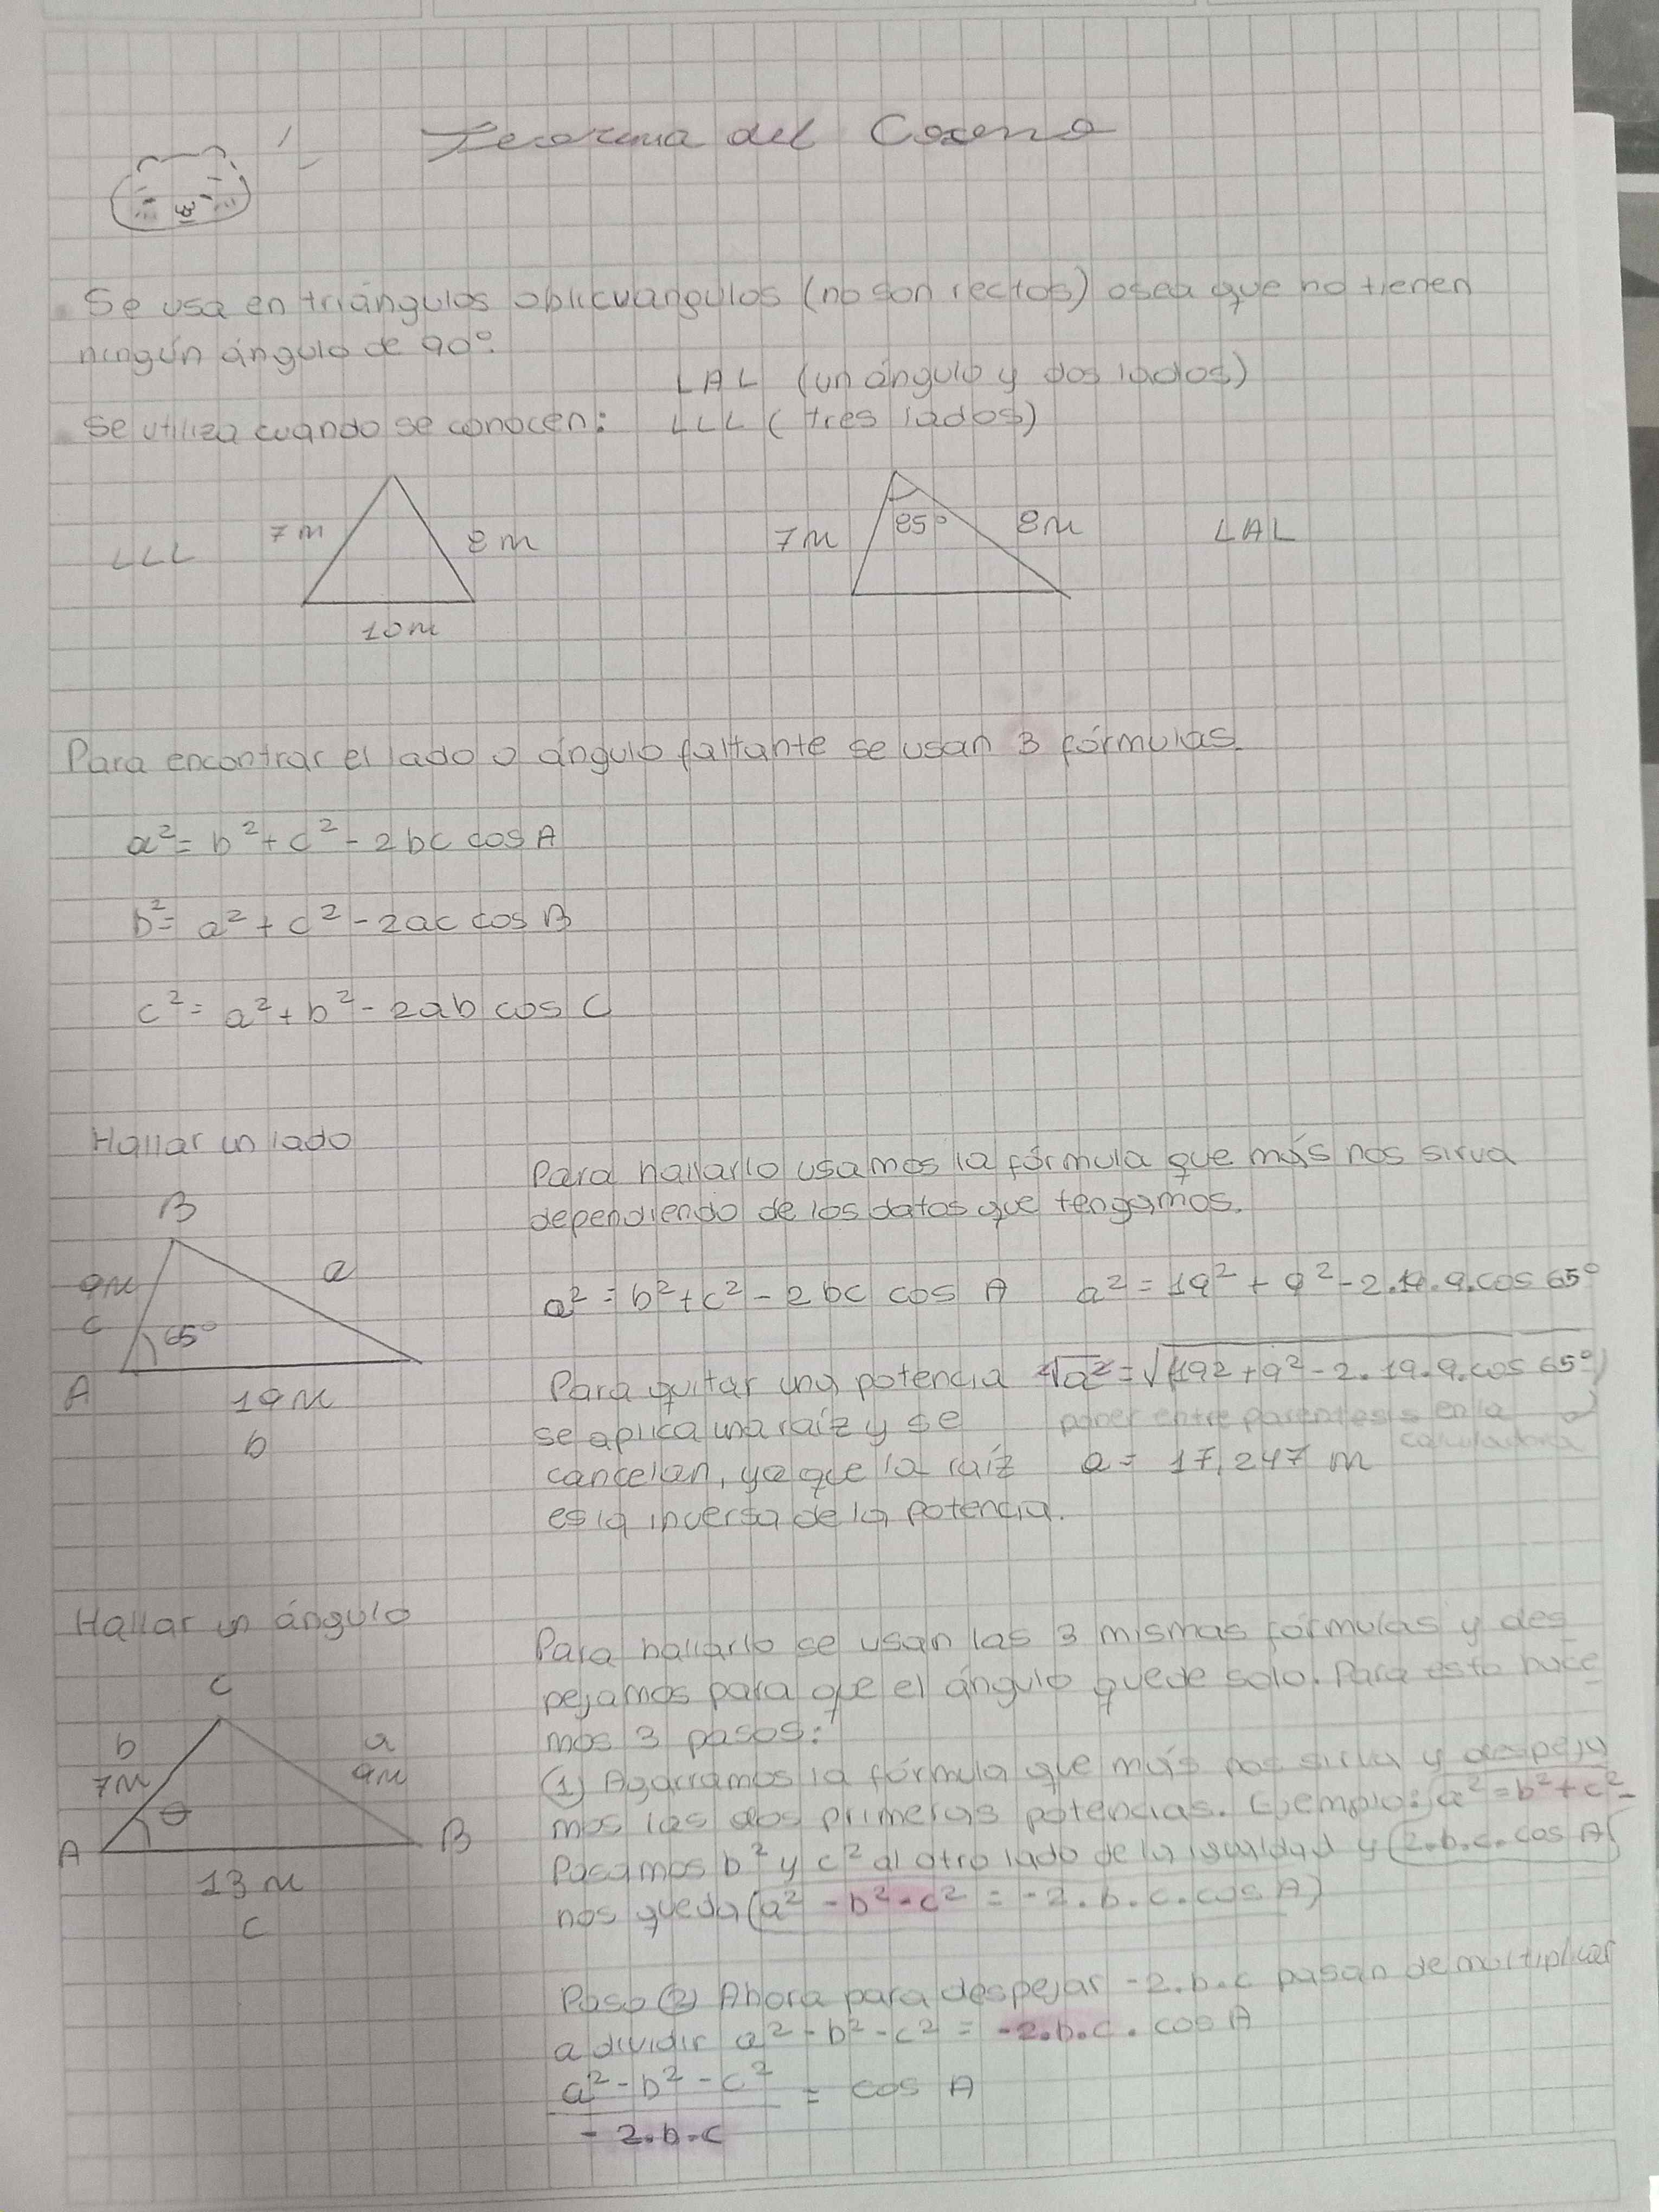 Teorema del Coseno
Se usa en triángulos oblicuangulos (no son rectos) osea que no tienen
ningún ángulo de 90°.
LAL (un ángulo y dos lados)
Se utiliza cuando se conocen: LLL (tres lados)
LLL 7m 8m 7m 85° 8m LAL
10m
Para encontrar el lado o ángulo faltante se usan 3 fórmulas.
a² = b² + c² - 2bc cos A
b² = a² + c² - 2ac cos B
c² = a² + b² - 2ab cos C
Hallar un lado
B
9m a
c 65°
A 19m
b
Para hallarlo usamos la fórmula que más nos sirva
dependiendo de los datos que tengamos.
a² = b² + c² - 2bc cos A a² = 19² + 9² - 2.19.9.cos 65°
Para quitar una potencia ²√a² = √(19² + 9² - 2.19.9.cos 65°)
se aplica una raíz y se poner entre parentesis en la
cancelan, ya que la raíz calculadora
a = 17,247 m
es la inversa de la potencia.
Hallar un ángulo
C
b a
7m 9m
θ
A B
13m
c
Para hallarlo se usan las 3 mismas fórmulas y des
pejamos para que el ángulo quede solo. Para esto hace
mos 3 pasos:
(1) Agarramos la fórmula que más nos sirva y despeja
mos las dos primeras potencias. Ejemplo: (a² = b² + c² -
2.b.c.cos A)
Pasamos b² y c² al otro lado de la igualdad y
nos queda (a² - b² - c² = -2.b.c.cos A)
Paso (2) Ahora para despejar -2.b.c pasan de multiplicar
a dividir a² - b² - c² = -2.b.c. cos A
a² - b² - c² = cos A
- 2.b.c